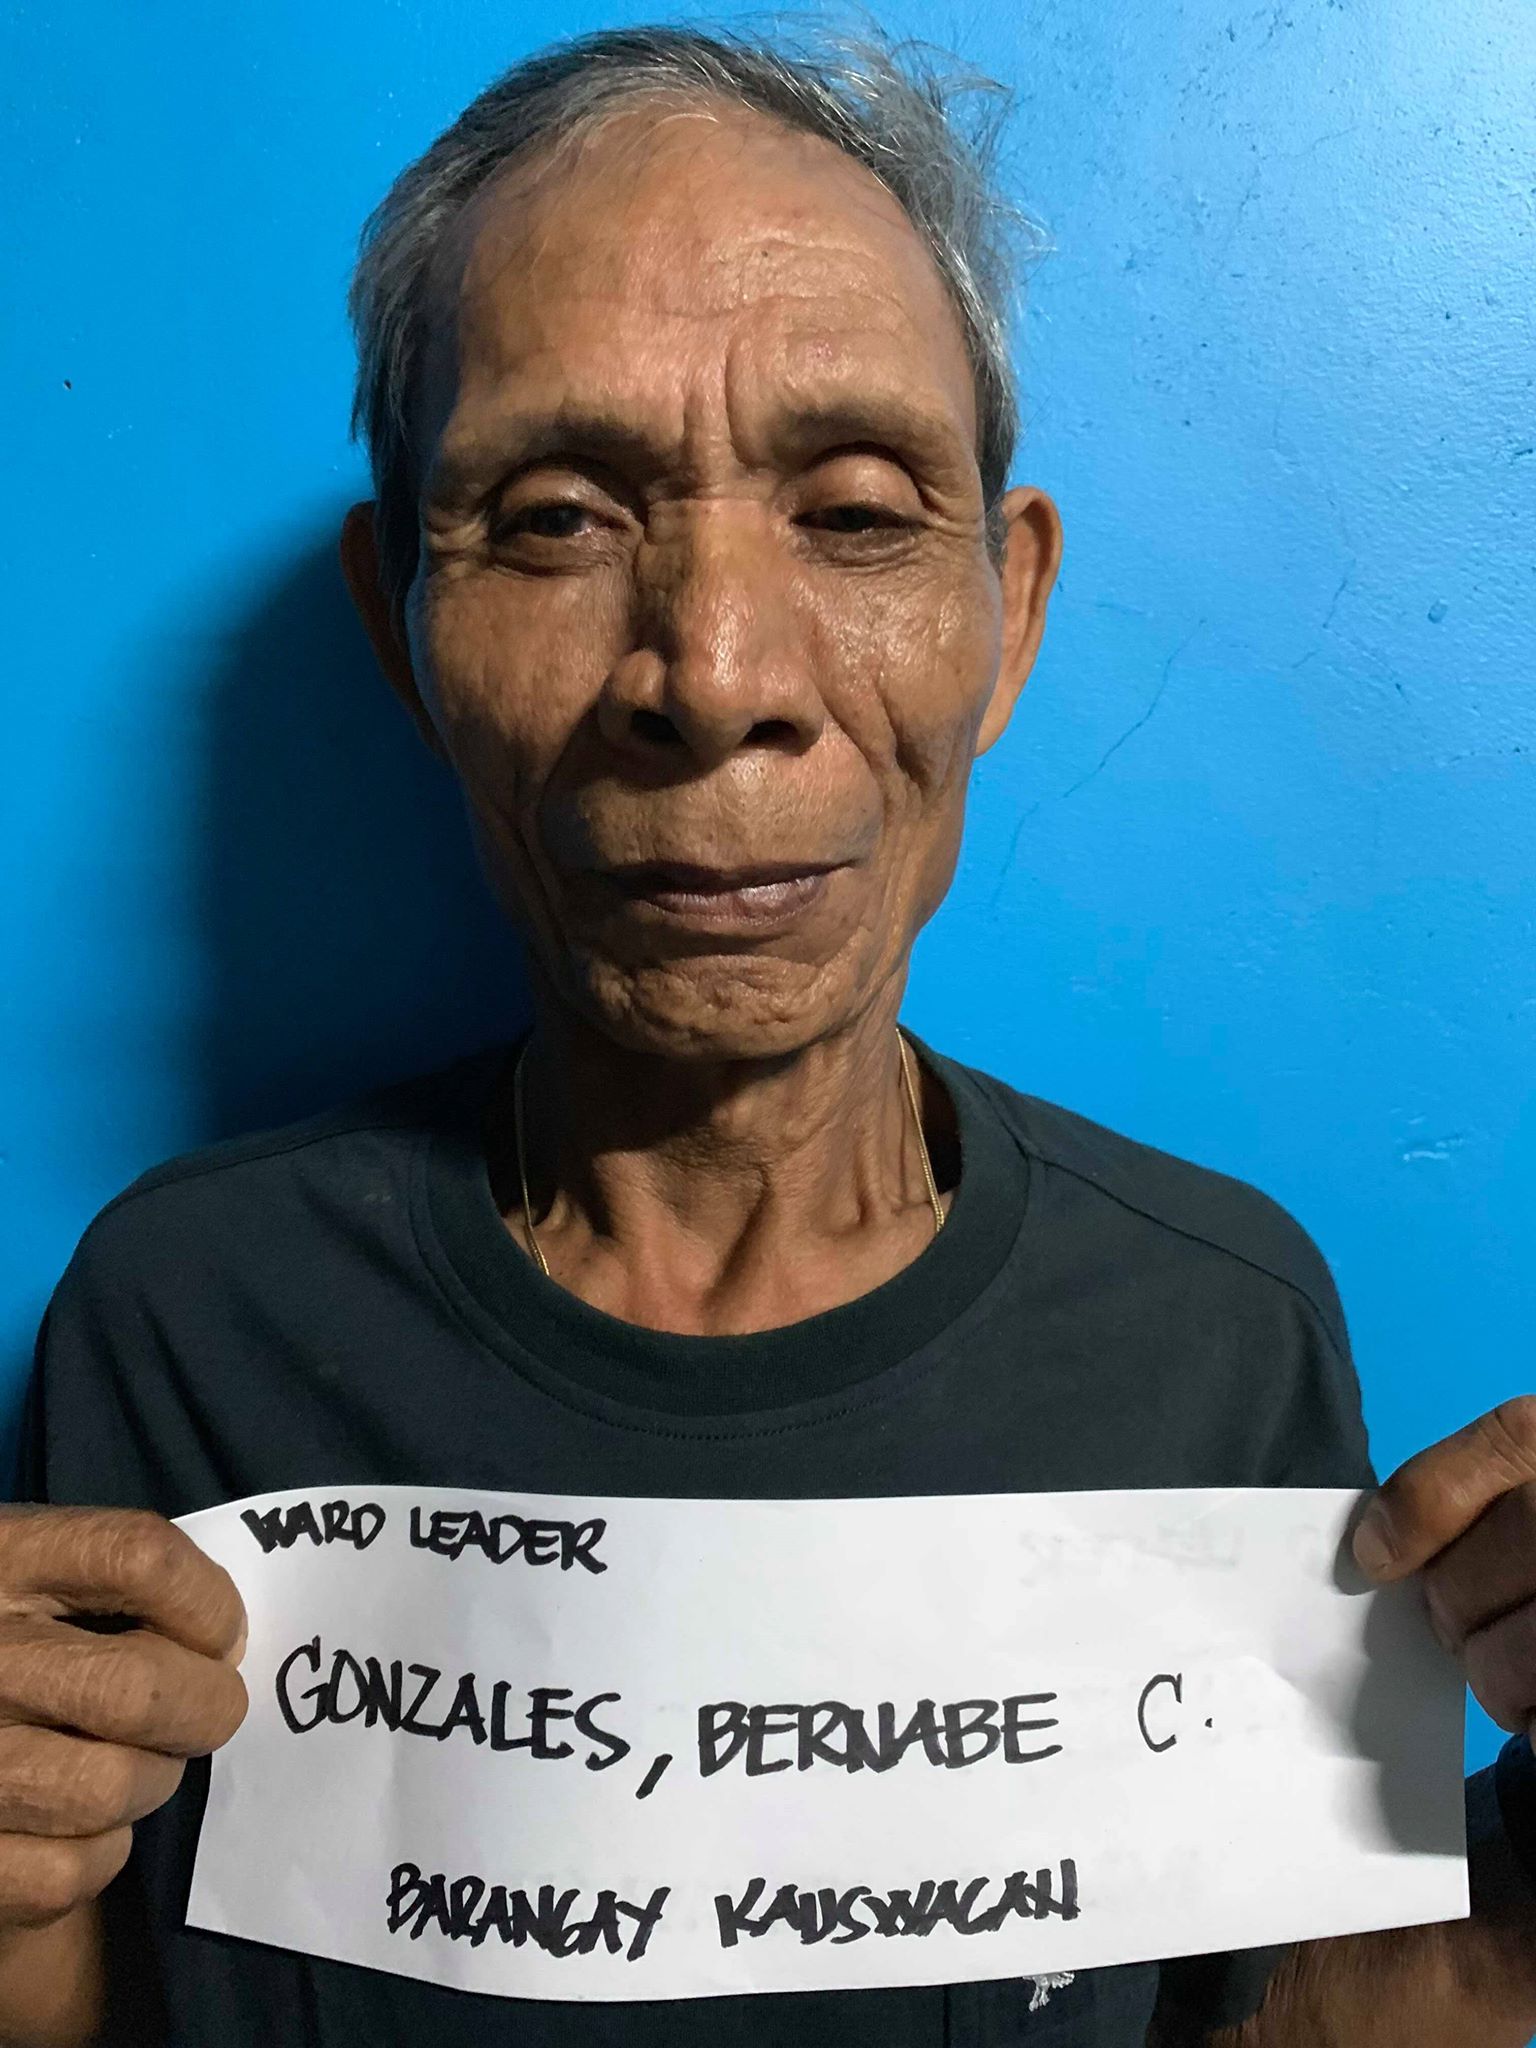 WARD LEADER
GONZALES, BERNABE C.
BARANGAY KAUSWAGAN